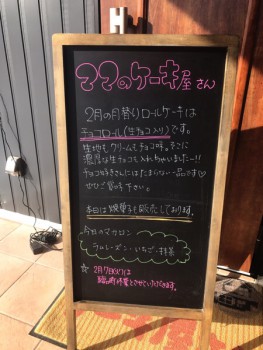 ママのケーキ屋さん
2月の月替りロールケーキは
チョコロール(生チョコ入り)です。
生地もクリームもチョコ味。そこに
濃厚な生チョコも入れちゃいましたー!!
チョコ好きさんにはたまらない一品です♡
ぜひご賞味下さい。
本日は焼菓子も販売しております。
今日のマカロン
ラムレーズン・いちご・抹茶
☆ 2月7日(火)は
臨時休業とさせていただきます。